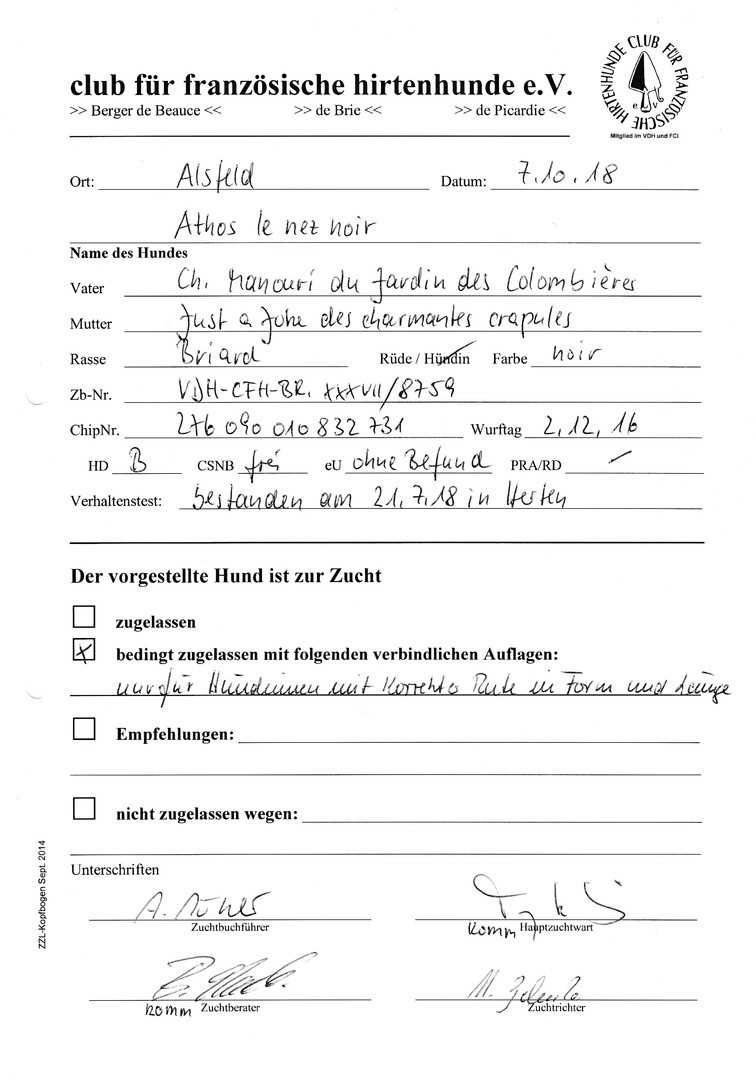 club für französische hirtenhunde e.V.
>> Berger de Beauce << >> de Brie << >> de Picardie <<
HIRTENHUNDE CLUB FÜR FRANZÖSISCHE
e.V.
Mitglied im VDH und FCI
Ort: Alsfeld Datum: 7.10.18
Athos le nez noir
Name des Hundes
Vater Ch. Manouri du Jardin des Colombières
Mutter Just a Joke des charmantes crapules
Rasse Briard Rüde / Hündin Farbe noir
Zb-Nr. VDH-CFH-BR. XXXVII/8759
ChipNr. 276 090 010 832 731 Wurftag 2.12.16
HD B CSNB frei eU ohne Befund PRA/RD /
Verhaltenstest: bestanden am 21.7.18 in Herten
Der vorgestellte Hund ist zur Zucht
zugelassen
x bedingt zugelassen mit folgenden verbindlichen Auflagen:
nur für Hündinnen mit korrekter Rute in Form und Länge
Empfehlungen:
nicht zugelassen wegen:
Unterschriften
A.
Zuchtbuchführer
Komm Hauptzuchtwart
B.
Komm Zuchtberater
M.
Zuchtrichter
ZZL-Kopfbogen Sept. 2014